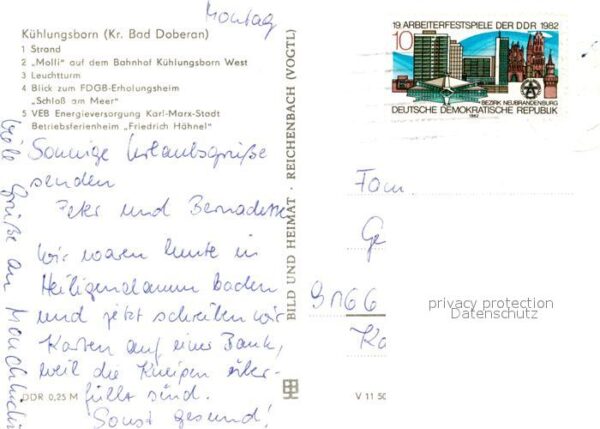 Montag
Kühlungsborn (Kr. Bad Doberan)
1 Strand
2 „Molli" auf dem Bahnhof Kühlungsborn West
3 Leuchtturm
4 Blick zum FDGB-Erholungsheim
„Schloß am Meer"
5 VEB Energieversorgung Karl-Marx-Stadt
Betriebsferienheim „Friedrich Hähnel"
Sonnige Urlaubsgrüße
senden
Peter und Bernadette
Wir waren heute in
Heiligendamm baden
und jetzt schreiben wir
Karten auf einer Bank,
weil die Kneipen über-
füllt sind.
Sonst gesund!
Viele Grüße an
DDR 0,25 M
BILD UND HEIMAT · REICHENBACH (VOGTL)
19. ARBEITERFESTSPIELE DER DDR 1982
10
BEZIRK NEUBRANDENBURG
DEUTSCHE DEMOKRATISCHE REPUBLIK
1982
Fam
Ge
9166
Ka
privacy protection
Datenschutz
V 11 50